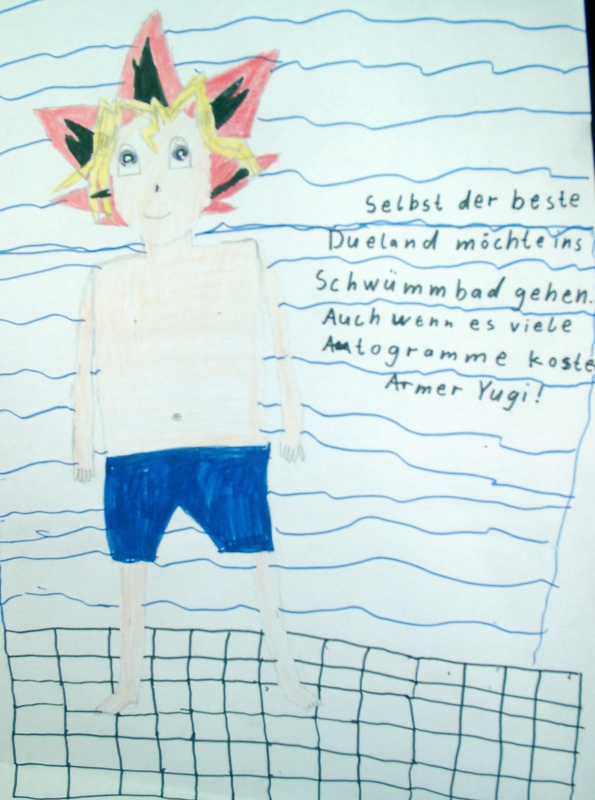 Selbst der beste
Dueland möchte ins
Schwümmbad gehen.
Auch wenn es viele
Autogramme koste
Armer Yugi!